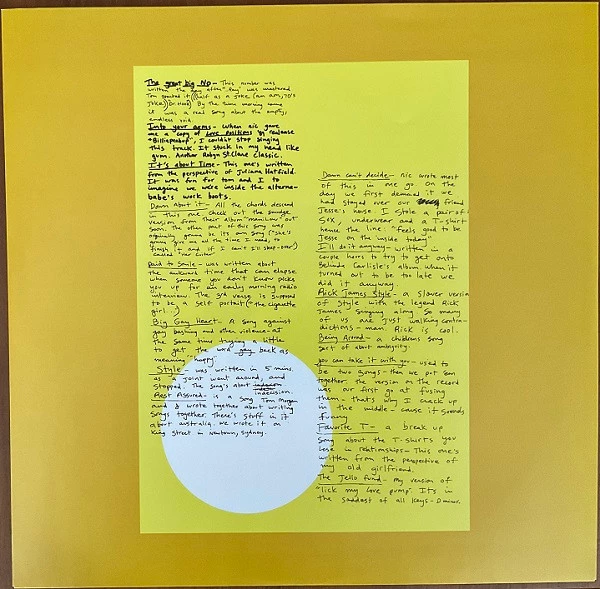 The great big No - This number was
written the day after "Ray" was mastered
Tom wanted it half as a joke (am am, 70's
Joke) Dr. Hook) By the time morning came
it was a real song about the empty,
endless void.
Into your arms - When nic gave
me a copy of Love Positions' release
"Billiepeebup", I couldn't stop singing
this track. It stuck in my head like
gum. Another Robyn St. Clare classic.
It's about time - This one's written
from the perspective of Juliana Hatfield.
It was fun for tom and I to
imagine we were inside the alterna-
babe's work boots.
Down About it - All the chords descend
in this one check out the smudge
version from their Album "manilow" out
soon. The other part of this song was
originally gonna be its own song ("she's
gonna give me all the time I need, to
finish in and if I can't I'll stop over)
called "Her Critter"
paid to smile - was written about
the awkward time that can elapse
when someone you don't know picks
you up for an early morning radio
interview. The 3rd verse is supposed
to be a self portrait ("the cigarette
girl...)
Big Gay Heart - A song against
gay bashing and other violence - at
the same time trying a little
to get the word gay back as
meaning "happy".
Style - was written in 5 mins.
as a joint went around, and
stopped. The song's about
indecision.
Rest Assured - is a song Tom Morgan
and I wrote together about writing
songs together. There's stuff in it
about australia. We wrote it on
King street in newtown, sydney.
Dawn can't decide - nic wrote most
of this in one go. On the
day we first demoed it we
had stayed over our friend
Jesse's house I stole a pair of
sox, underwear and a T-shirt
hence the line: "feels good to be
Jesse on the inside today"
I'll do it anyway - written in a
couple hours to try to get onto
Belinda Carlisle's album when it
turned out to be too late we
did it anyway.
Rick James Style - a slower version
of Style with the legend Rick
James singing along so many
of us are just walking contra-
dictions - man. Rick is cool.
Being Around - a childrens song
sort of about ambiguity.
you can take it with you - used to
be two songs - then we put em
together the version on the record
was our first go at fusing
them - thats why I crack up
in the middle - cause it sounds
funny
Favorite T - a break up
song about the T-shirts you
lose in relationships - This one's
written from the perspective of
my old girlfriend.
The Jello Fund - my version of
"lick my love pump". It's in
the saddest of all keys - D minor.